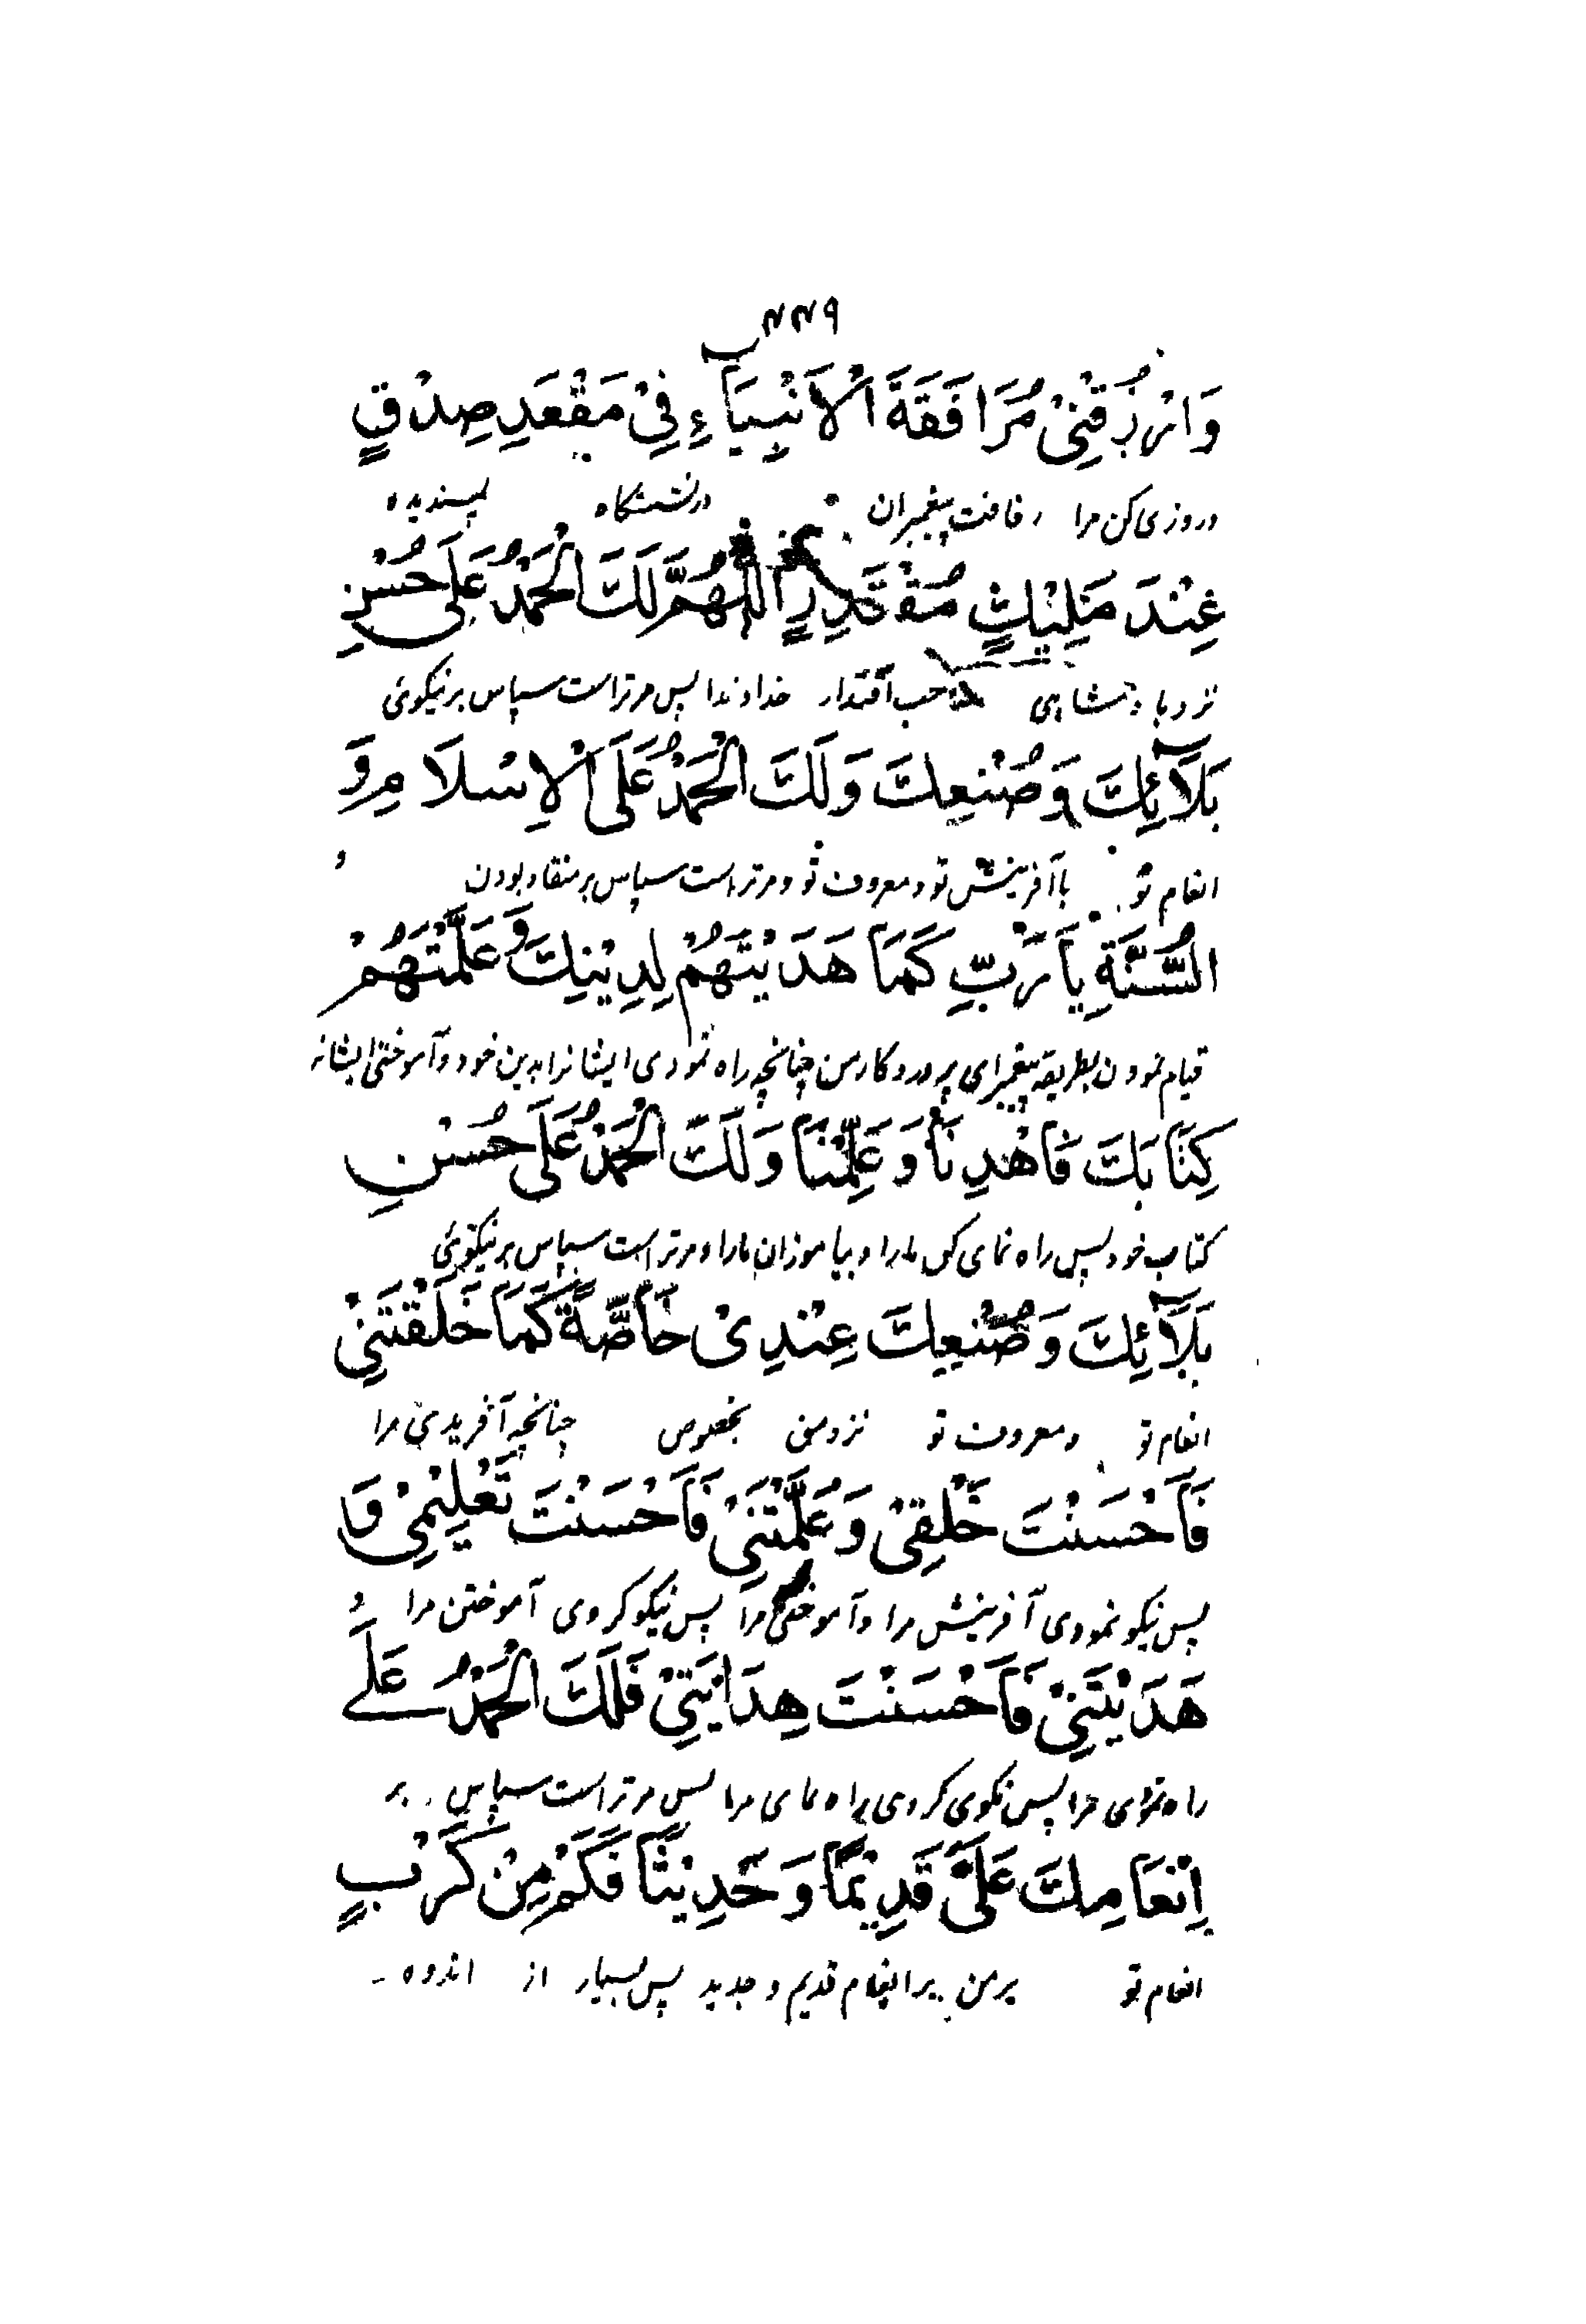 ۴۴۹
وَارْزُقْنِیْ مُرَافَقَةَ الْاَنْبِیَآءِ فِیْ مَقْعَدِ صِدْقٍ
وروزی کن مرا رفاقت پیغمبران درنشستگاه پسندیده
عِنْدَ مَلِیْكٍ مُقْتَدِرٍ اَللّٰهُمَّ لَكَ الْحَمْدُ عَلٰی حُسْنِ
نزد پادشاهی صاحب اقتدار خداوندا پس مرتراست سپاس برنیکوئی
بَلَآئِكَ وَصُنْعِكَ وَلَكَ الْحَمْدُ عَلَی الْاِسْلَامِ وَ
انعام تو باآفرینش تو ومعروف تو ومرتراست سپاس برمنقاد بودن و
السُّنَّةِ یَارَبِّ كَمَا هَدَیْتَهُمْ لِدِیْنِكَ وَعَلَّمْتَهُمْ
قیام نمودن بطریقه پیغمبر ای پروردگارمن چنانچه راه نمودی ایشانرا بدین خود وآموختی ایشانرا
كِتَابَكَ فَاهْدِنَا وَعَلِّمْنَا وَلَكَ الْحَمْدُ عَلٰی حُسْنِ
کتاب خود پس راه نمای کن مارا وبیاموزان مارا ومرتراست سپاس برنیکوئی
بَلَآئِكَ وَصُنْعِكَ عِنْدِیْ خَاصَّةً كَمَا خَلَقْتَنِیْ
انعام تو ومعروف تو نزدمن بخصوص چنانچه آفریدی مرا
فَاَحْسَنْتَ خَلْقِیْ وَعَلَّمْتَنِیْ فَاَحْسَنْتَ تَعْلِیْمِیْ وَ
پس نیکو نمودی آفرینش مرا وآموختی مرا پس نیکو کردی آموختن مرا و
هَدَیْتَنِیْ فَاَحْسَنْتَ هِدَایَتِیْ فَلَكَ الْحَمْدُ عَلٰے
راه نمودی مرا پس نکوی کردی راه نمای مرا پس مرتراست سپاس بر
اِنْعَامِكَ عَلَیَّ قَدِیْمًا وَحَدِیْثًا فَكَمْ مِنْ كَرْبٍ
انعام تو برمن برانعام قدیم وجدید پس بسیار از اندوه